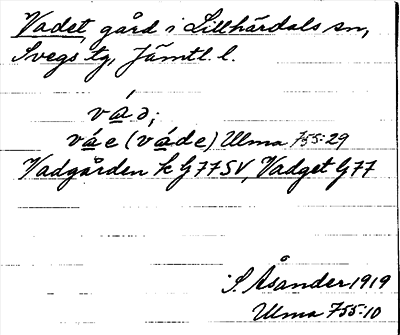 Vadet, gård i Lillhärdals sn,
Svegs tg, Jämtl. l.
vá ə;
váe (váde) Ulma 755:29
Vadgården k G77SV, Vadget G77
S. Åsander 1919
Ulma 755:10